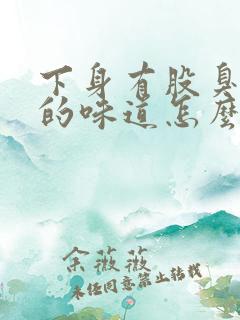 下身有股臭
的味道怎麽
余薇薇
未经同意禁止转载